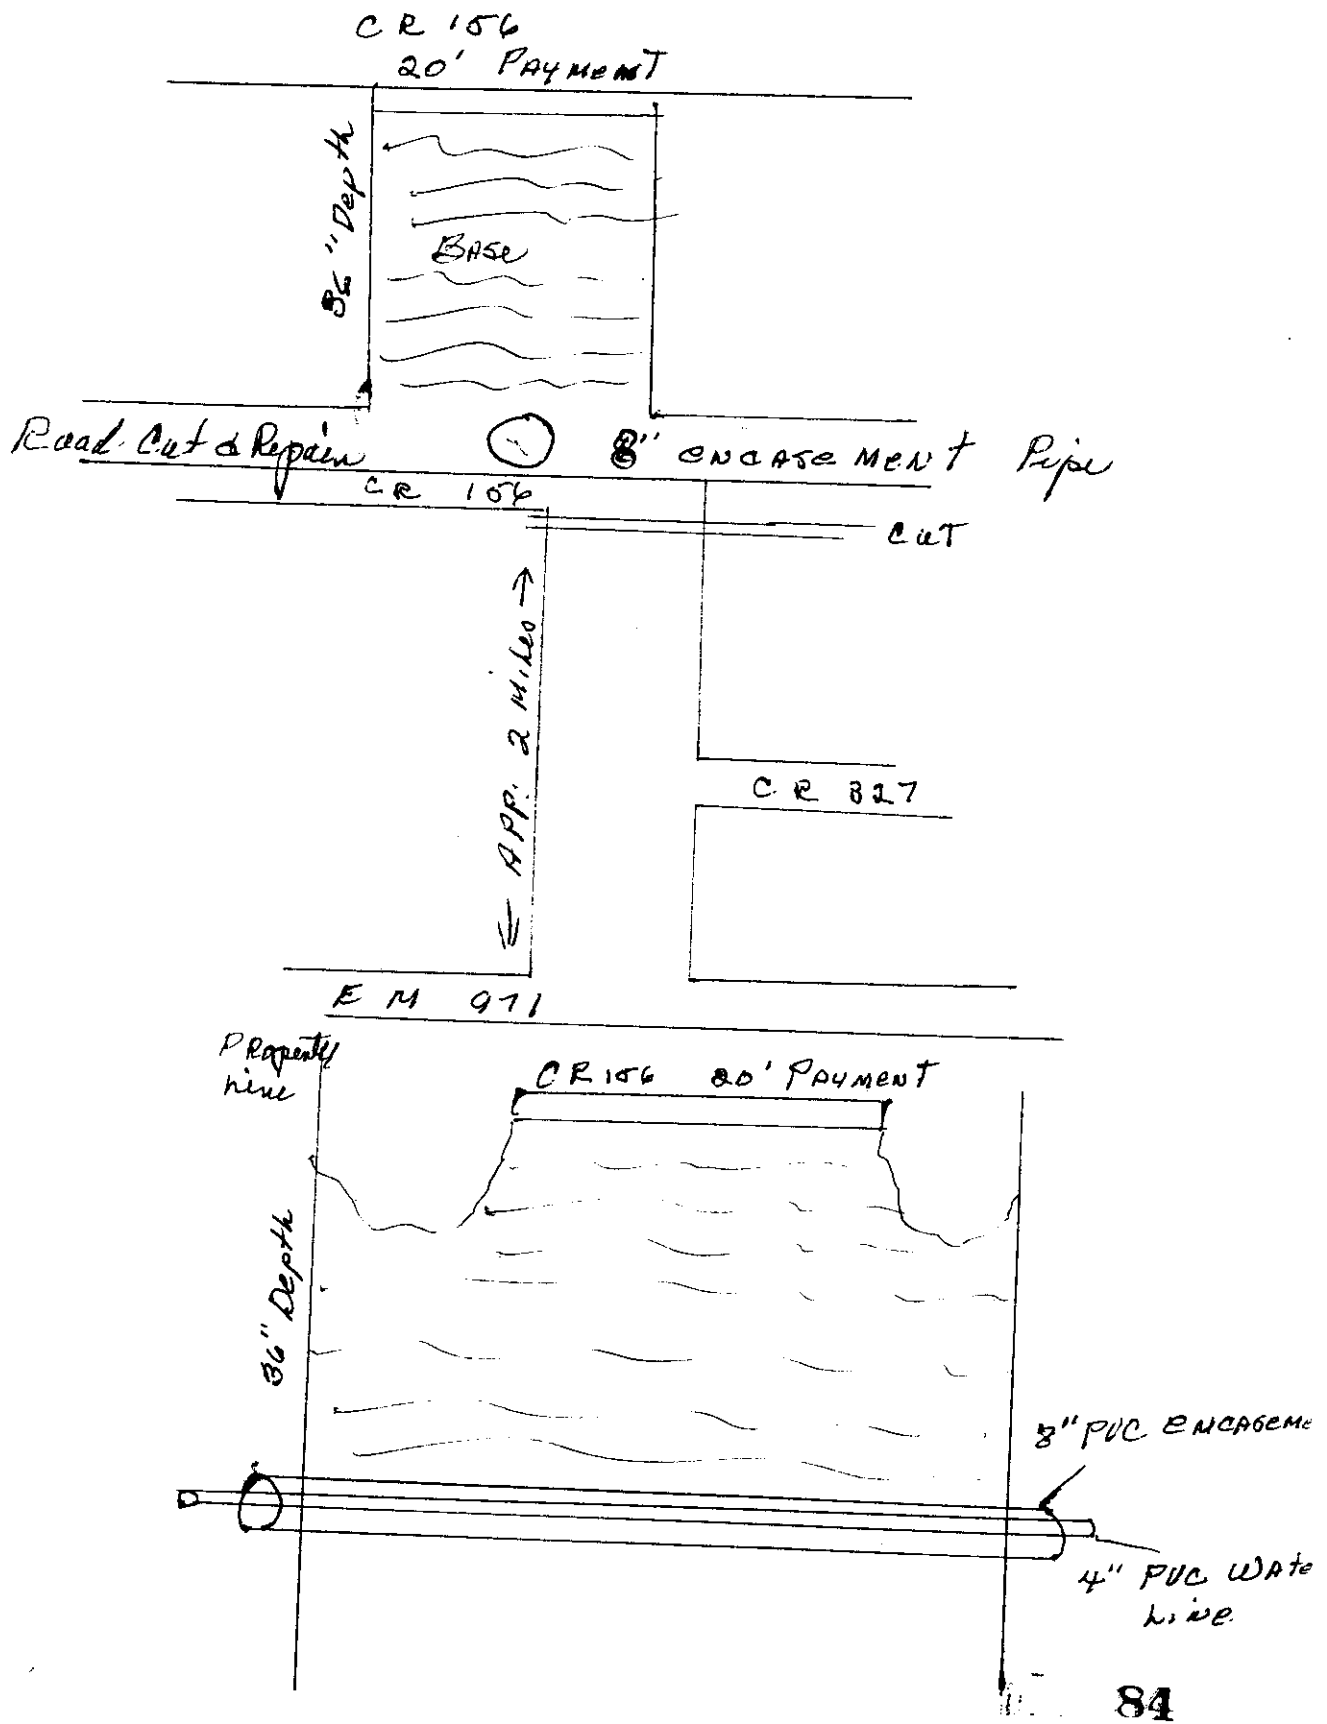 CR 156
20' PAYMENT
36" Depth
BASE
Road Cut & Repair
8" ENCASEMENT Pipe
CR 156
CUT
← APP. 2 Miles →
CR 327
FM 971
PROPERTY
LINE
CR 156 20' PAYMENT
36" Depth
8" PVC ENCASEME
4" PVC WATE
LINE
84